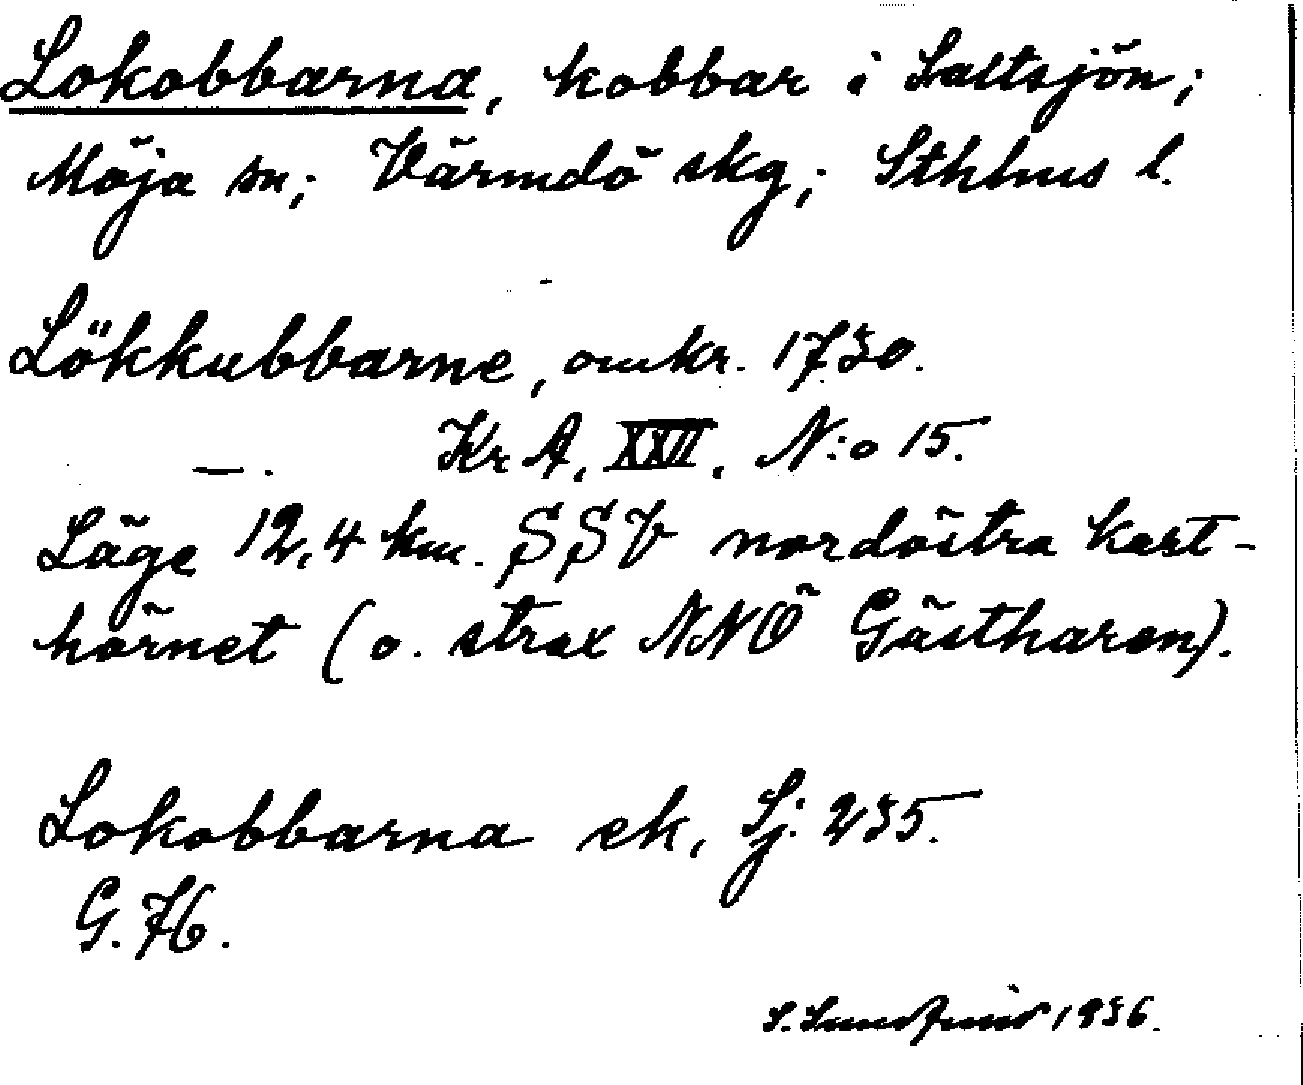 Lokobbarna, kobbar i Saltsjön;
Möja sn; Värmdö skg; Sthlms l.
Lökkubbarne, omkr. 1730.
—. Kr A, XXII, N:o 15.
Läge 12,4 km. SSV nordöstra kart-
hörnet (o. strax NNÖ Gästharen).
Lokobbarna ek, Sj. 235.
G. 76.
S. 1936.